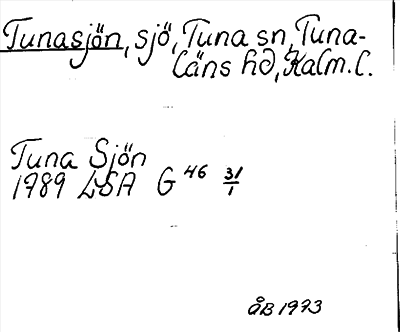 Tunasjön, sjö, Tuna sn, Tuna-
läns hd, Kalm. l.
Tuna Sjön
1789 LSA G 46 31/1
ÅB 1973